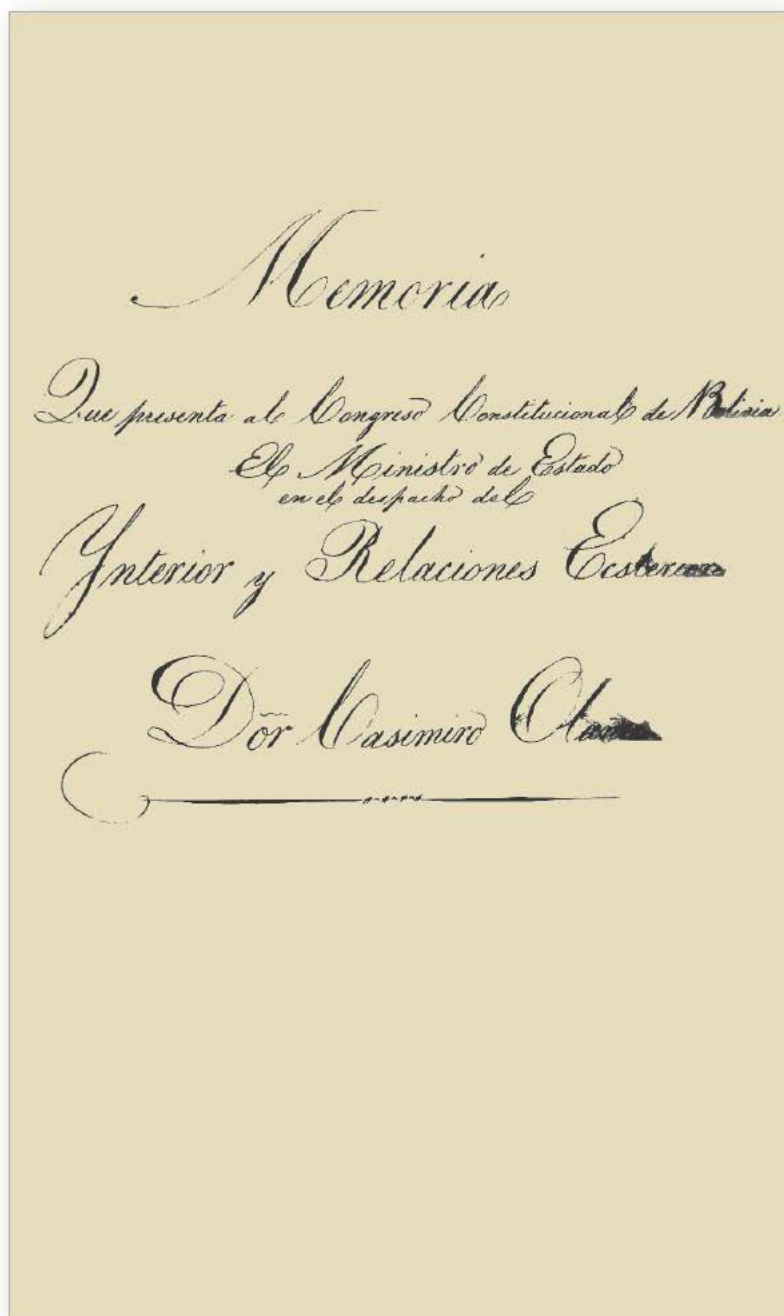 Memoria
Que presenta al Congreso Constitucional de Bolivia
El Ministro de Estado
en el despacho del
Ynterior y Relaciones Ecsteriores
Dōr Casimiro